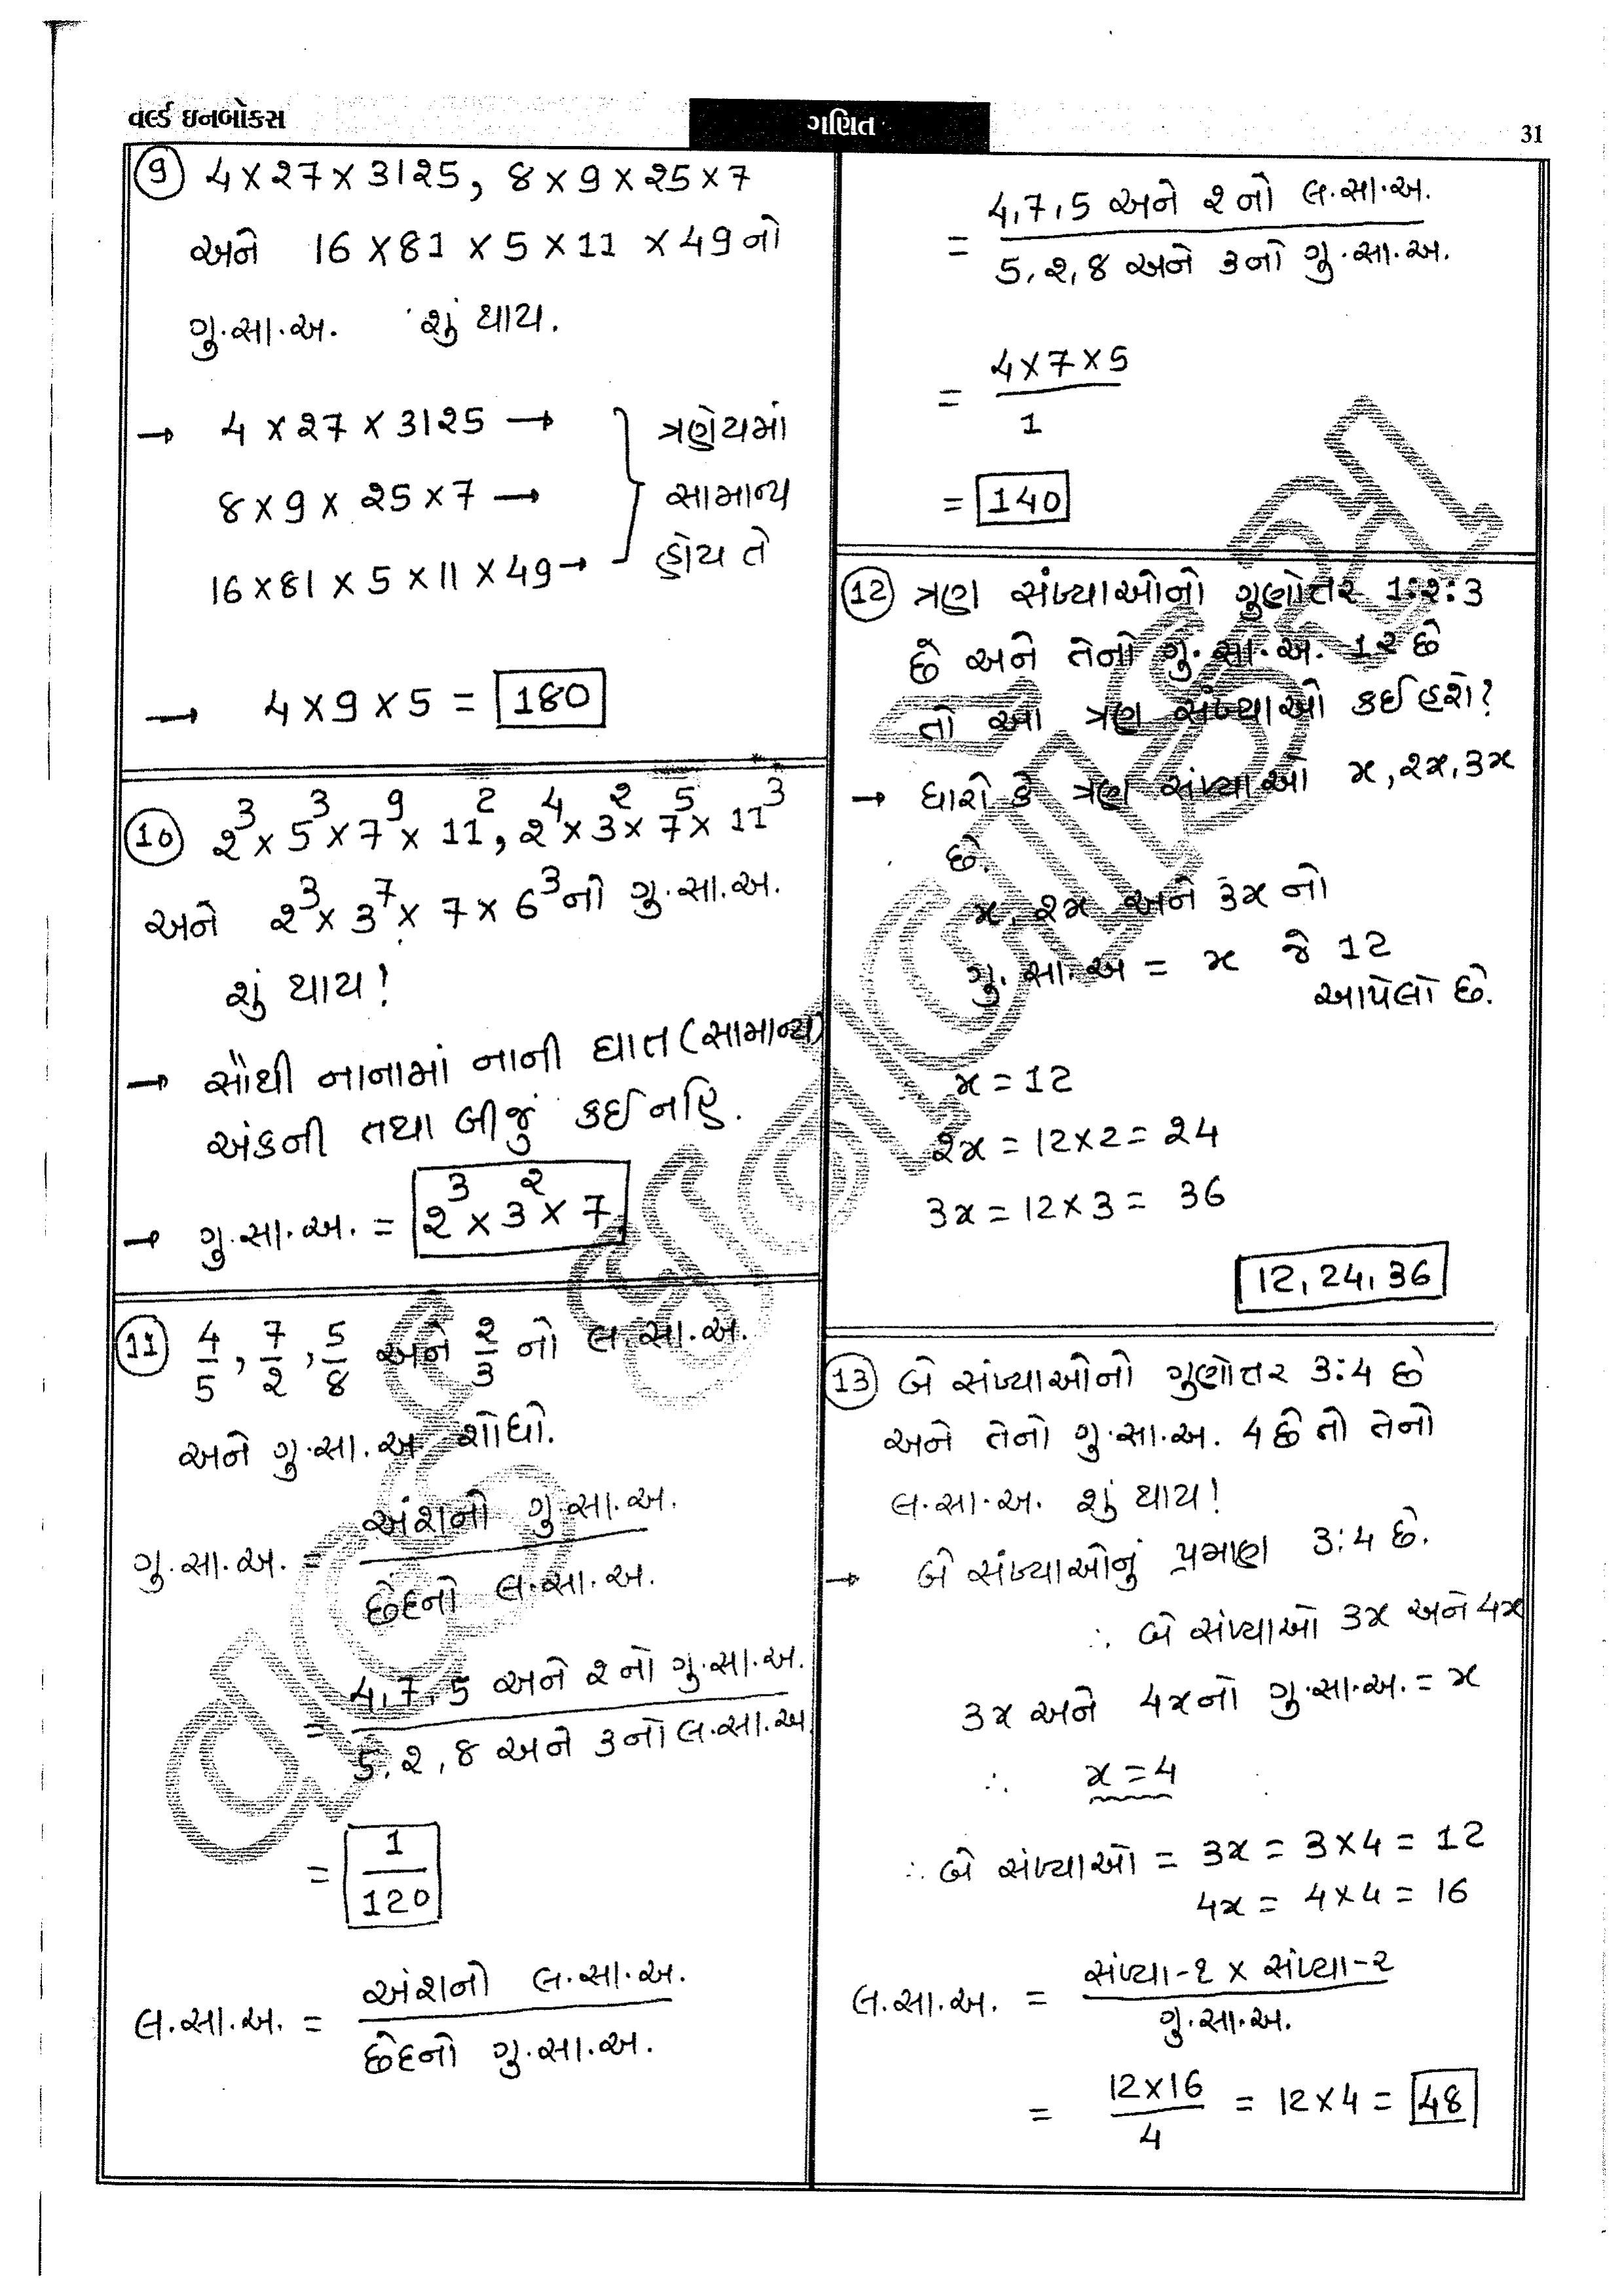 વર્લ્ડ ઇનબોક્સ
ગણિત
31
(9) 4 × 27 × 3125, 8 × 9 × 25 × 7
અને 16 × 81 × 5 × 11 × 49 નો
ગુ.સા.અ. શું થાય.
→ 4 × 27 × 3125 → } ત્રણેયમાં
8 × 9 × 25 × 7 → સામાન્ય
16 × 81 × 5 × 11 × 49 → હોય તે
→ 4 × 9 × 5 = 180
(10) 2³ × 5³ × 7⁹ × 11², 2⁴ × 3² × 7⁵ × 11³
અને 2³ × 3⁷ × 7 × 6³ નો ગુ.સા.અ.
શું થાય!
→ સૌથી નાનામાં નાની ઘાત (સામાન્ય)
અંકની તથા બીજું કઈ નહિ.
→ ગુ.સા.અ. = 2³ × 3² × 7
(11) 4/5, 7/2, 5/8 અને 2/3 નો લ.સા.અ.
અને ગુ.સા.અ. શોધો.
ગુ.સા.અ. = અંશનો ગુ.સા.અ. / છેદનો લ.સા.અ.
= 4, 7, 5 અને 2 નો ગુ.સા.અ. / 5, 2, 8 અને 3 નો લ.સા.અ.
= 1/120
લ.સા.અ. = અંશનો લ.સા.અ. / છેદનો ગુ.સા.અ.
= 4, 7, 5 અને 2 નો લ.સા.અ. / 5, 2, 8 અને 3 નો ગુ.સા.અ.
= 4 × 7 × 5 / 1
= 140
(12) ત્રણ સંખ્યાઓનો ગુણોત્તર 1:2:3
છે અને તેનો ગુ.સા.અ. 12 છે
તો આ ત્રણ સંખ્યાઓ કઈ હશે?
→ ધારો કે ત્રણ સંખ્યાઓ x, 2x, 3x
છે.
x, 2x અને 3x નો
ગુ.સા.અ = x જે 12
આપેલો છે.
x = 12
2x = 12 × 2 = 24
3x = 12 × 3 = 36
12, 24, 36
(13) બે સંખ્યાઓનો ગુણોત્તર 3:4 છે
અને તેનો ગુ.સા.અ. 4 છે તો તેનો
લ.સા.અ. શું થાય!
→ બે સંખ્યાઓનું પ્રમાણ 3:4 છે.
∴ બે સંખ્યાઓ 3x અને 4x
3x અને 4x નો ગુ.સા.અ. = x
∴ x = 4
∴ બે સંખ્યાઓ = 3x = 3 × 4 = 12
4x = 4 × 4 = 16
લ.સા.અ. = સંખ્યા-૧ × સંખ્યા-૨ / ગુ.સા.અ.
= 12 × 16 / 4 = 12 × 4 = 48